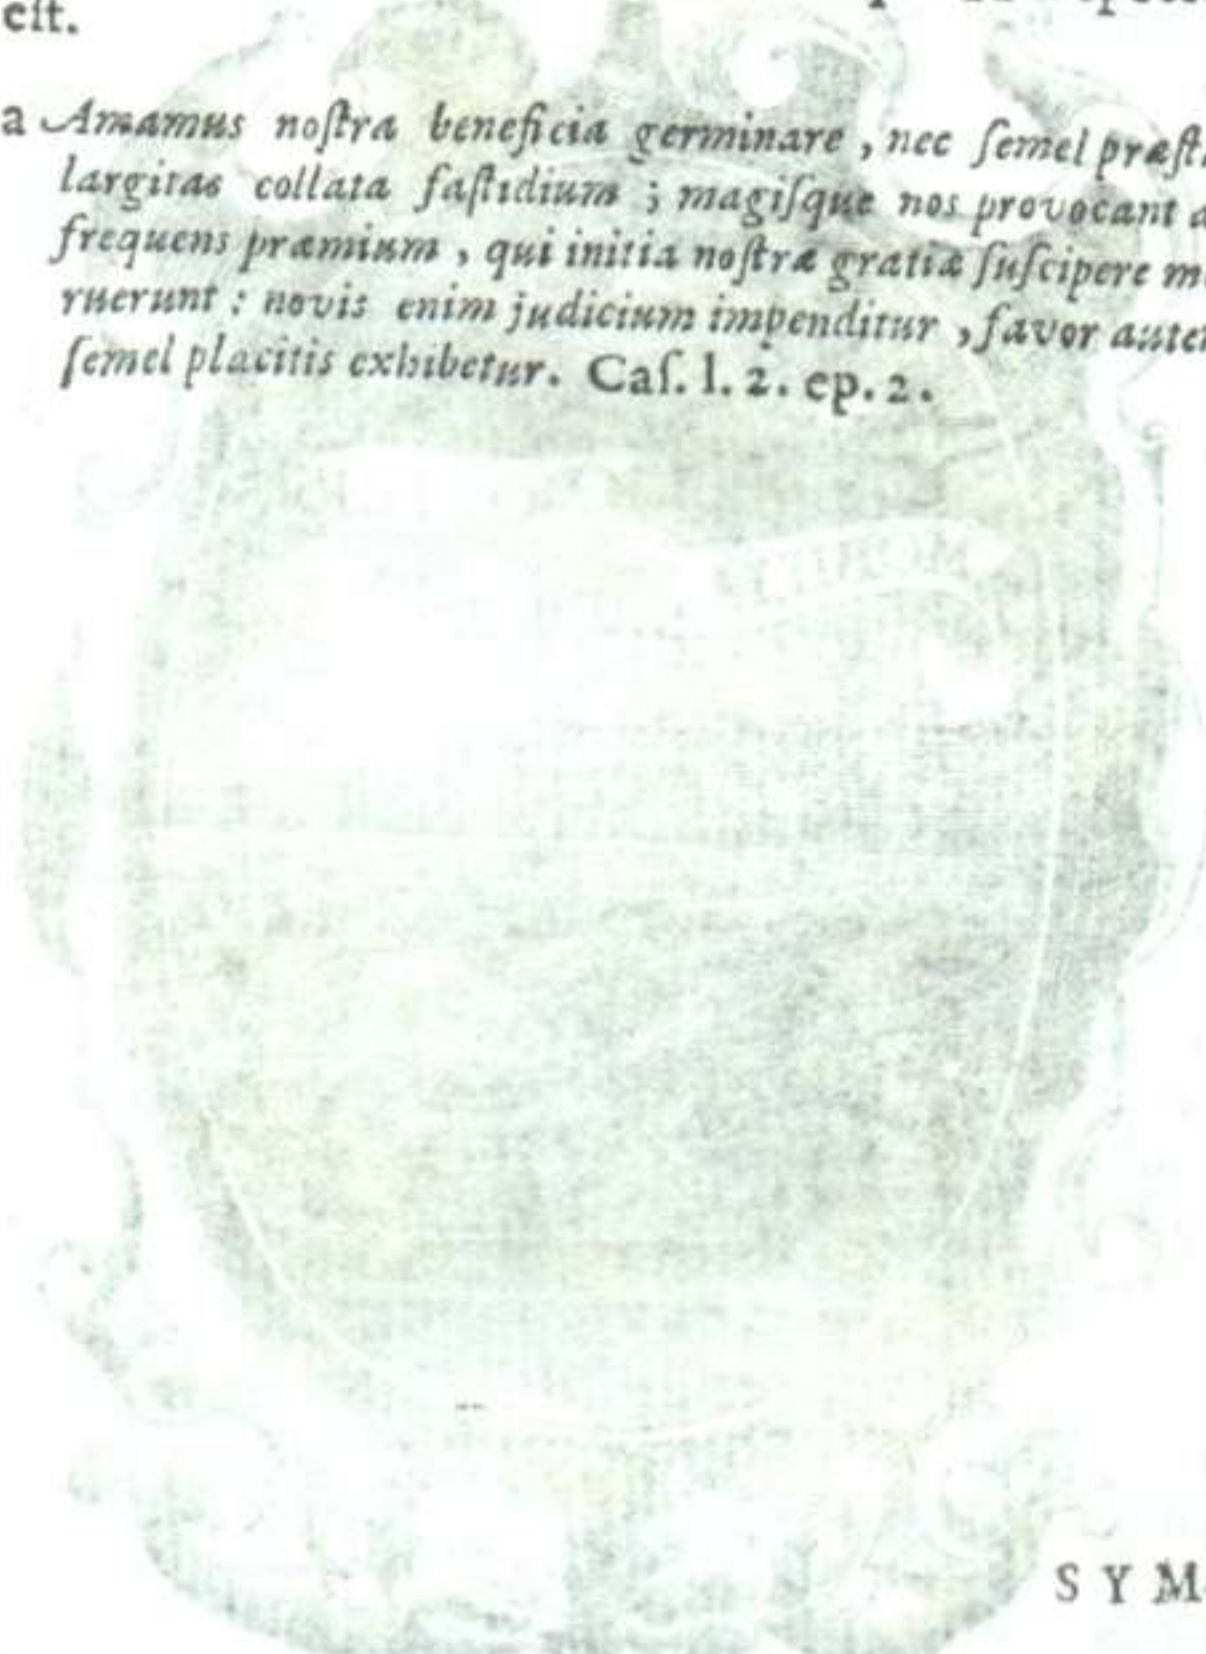 est.
a Amamus noſtra beneficia germinare, nec ſemel præſt
largitas collata faſtidium; magiſque nos provocant a
frequens præmium, qui initia noſtræ gratiæ ſuſcipere me
ruerunt: novis enim judicium impenditur, favor autem
ſemel placitis exhibetur. Caſ. l. 2. ep. 2.
SYM-